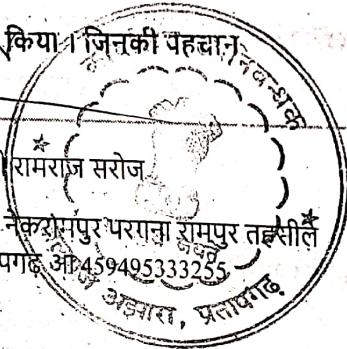 किया । जिनकी पहचान
रामराज सरोज
नेकरामपुर परगना रामपुर तहसील
पगढ़ आ 459495333255
अझारा, प्रतापगढ़